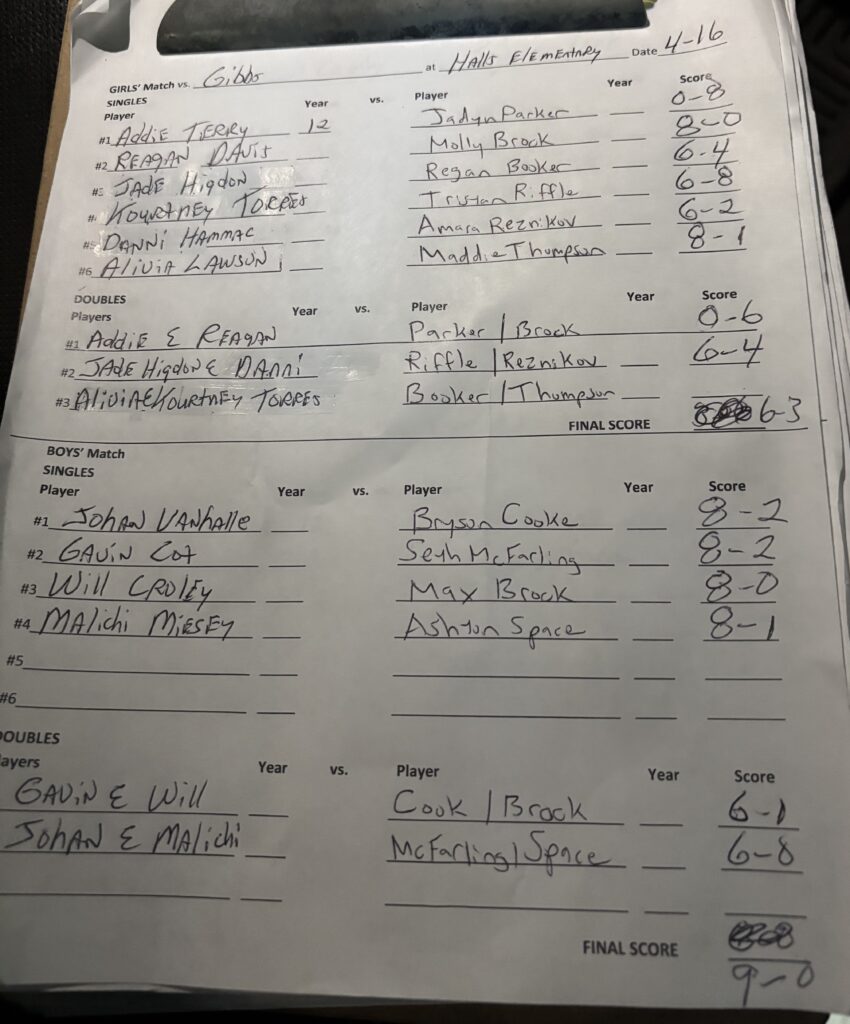 GIRLS' Match vs. Gibbs at Halls Elementary Date 4-16
SINGLES
Player Year vs. Player Year Score
#1 Addie Terry 12 Jadyn Parker 0-8
#2 Reagan Davis Molly Brock 8-0
#3 Jade Higdon Regan Booker 6-4
#4 Kourtney Torres Tristan Riffle 6-8
#5 Danni Hammac Amara Reznikov 6-2
#6 Alivia Lawson Maddie Thompson 8-1
DOUBLES
Players Year vs. Player Year Score
#1 Addie & Reagan Parker / Brock 0-6
#2 Jade Higdon & Danni Riffle / Reznikov 6-4
#3 Alivia & Kourtney Torres Booker / Thompson
FINAL SCORE 6-3
BOYS' Match
SINGLES
Player Year vs. Player Year Score
#1 Johan Vanhalle Bryson Cooke 8-2
#2 Gavin Cox Seth McFarling 8-2
#3 Will Croley Max Brock 8-0
#4 Malichi Miesey Ashton Space 8-1
#5
#6
DOUBLES
layers Year vs. Player Year Score
Gavin & Will Cook / Brock 6-1
Johan & Malichi McFarling / Space
FINAL SCORE
9-0